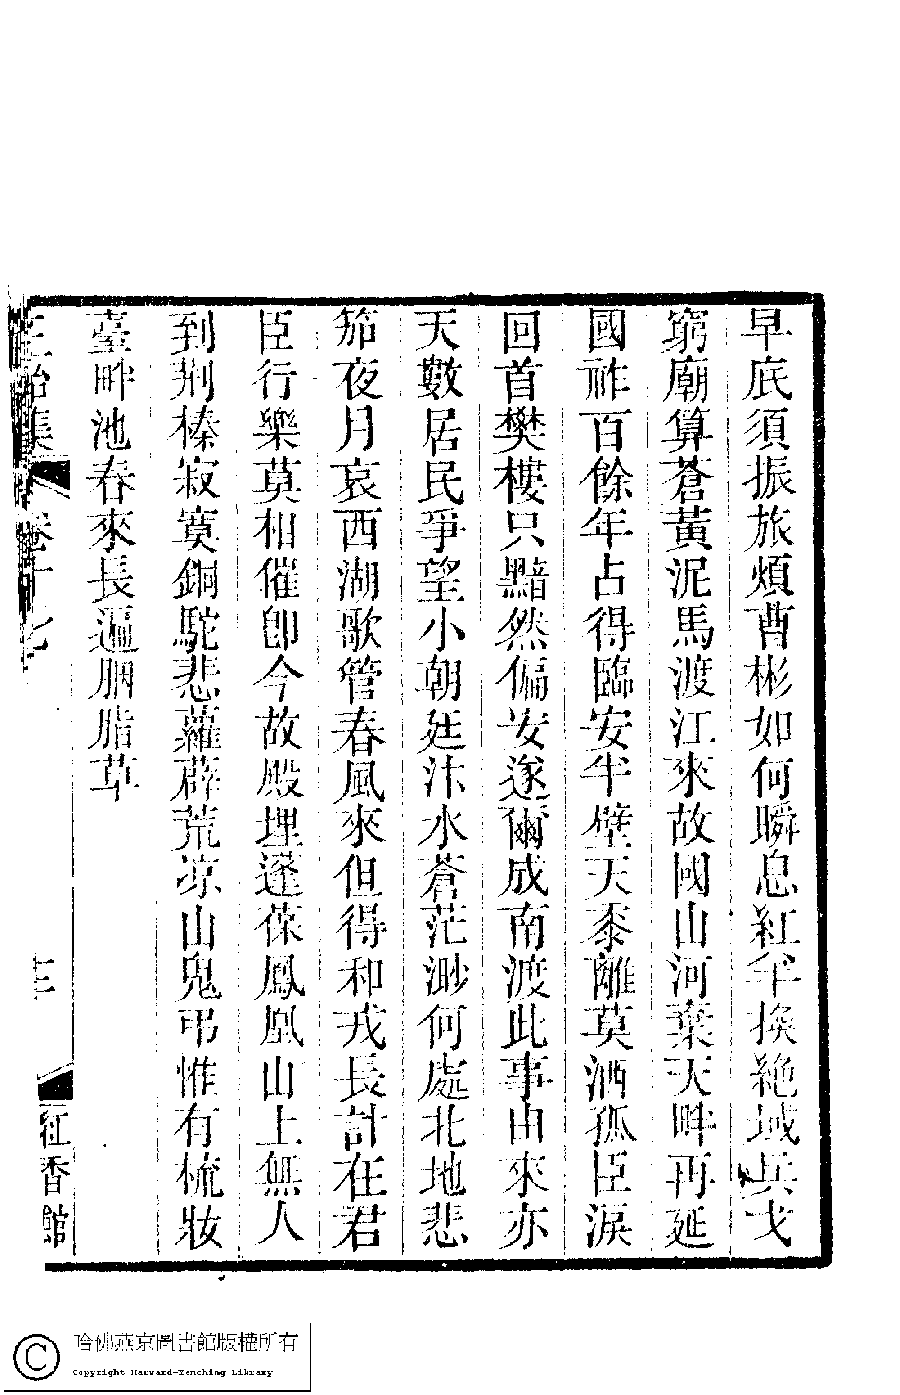 早底須振旅煩曹彬如何瞬息紅羊換絶域兵戈
窮廟算蒼黃泥馬渡江來故國山河棄天畔再延
國祚百餘年占得臨安半壁天黍離莫洒孤臣淚
回首樊樓只黯然偏安遂爾成南渡此事由來亦
天數居民爭望小朝廷汴水蒼茫渺何處北地悲
笳夜月哀西湖歌管春風來但得和戎長計在君
臣行樂莫相催即今故殿埋蓬葆鳳凰山上無人
到荆榛寂寞銅駝悲蘿薜荒凉山鬼弔惟有梳妝
臺畔池春來長遍胭脂草
三 集 卷十七 三 紅香館
哈佛燕京圖書館版權所有
Copyright Harvard-Yenching Library